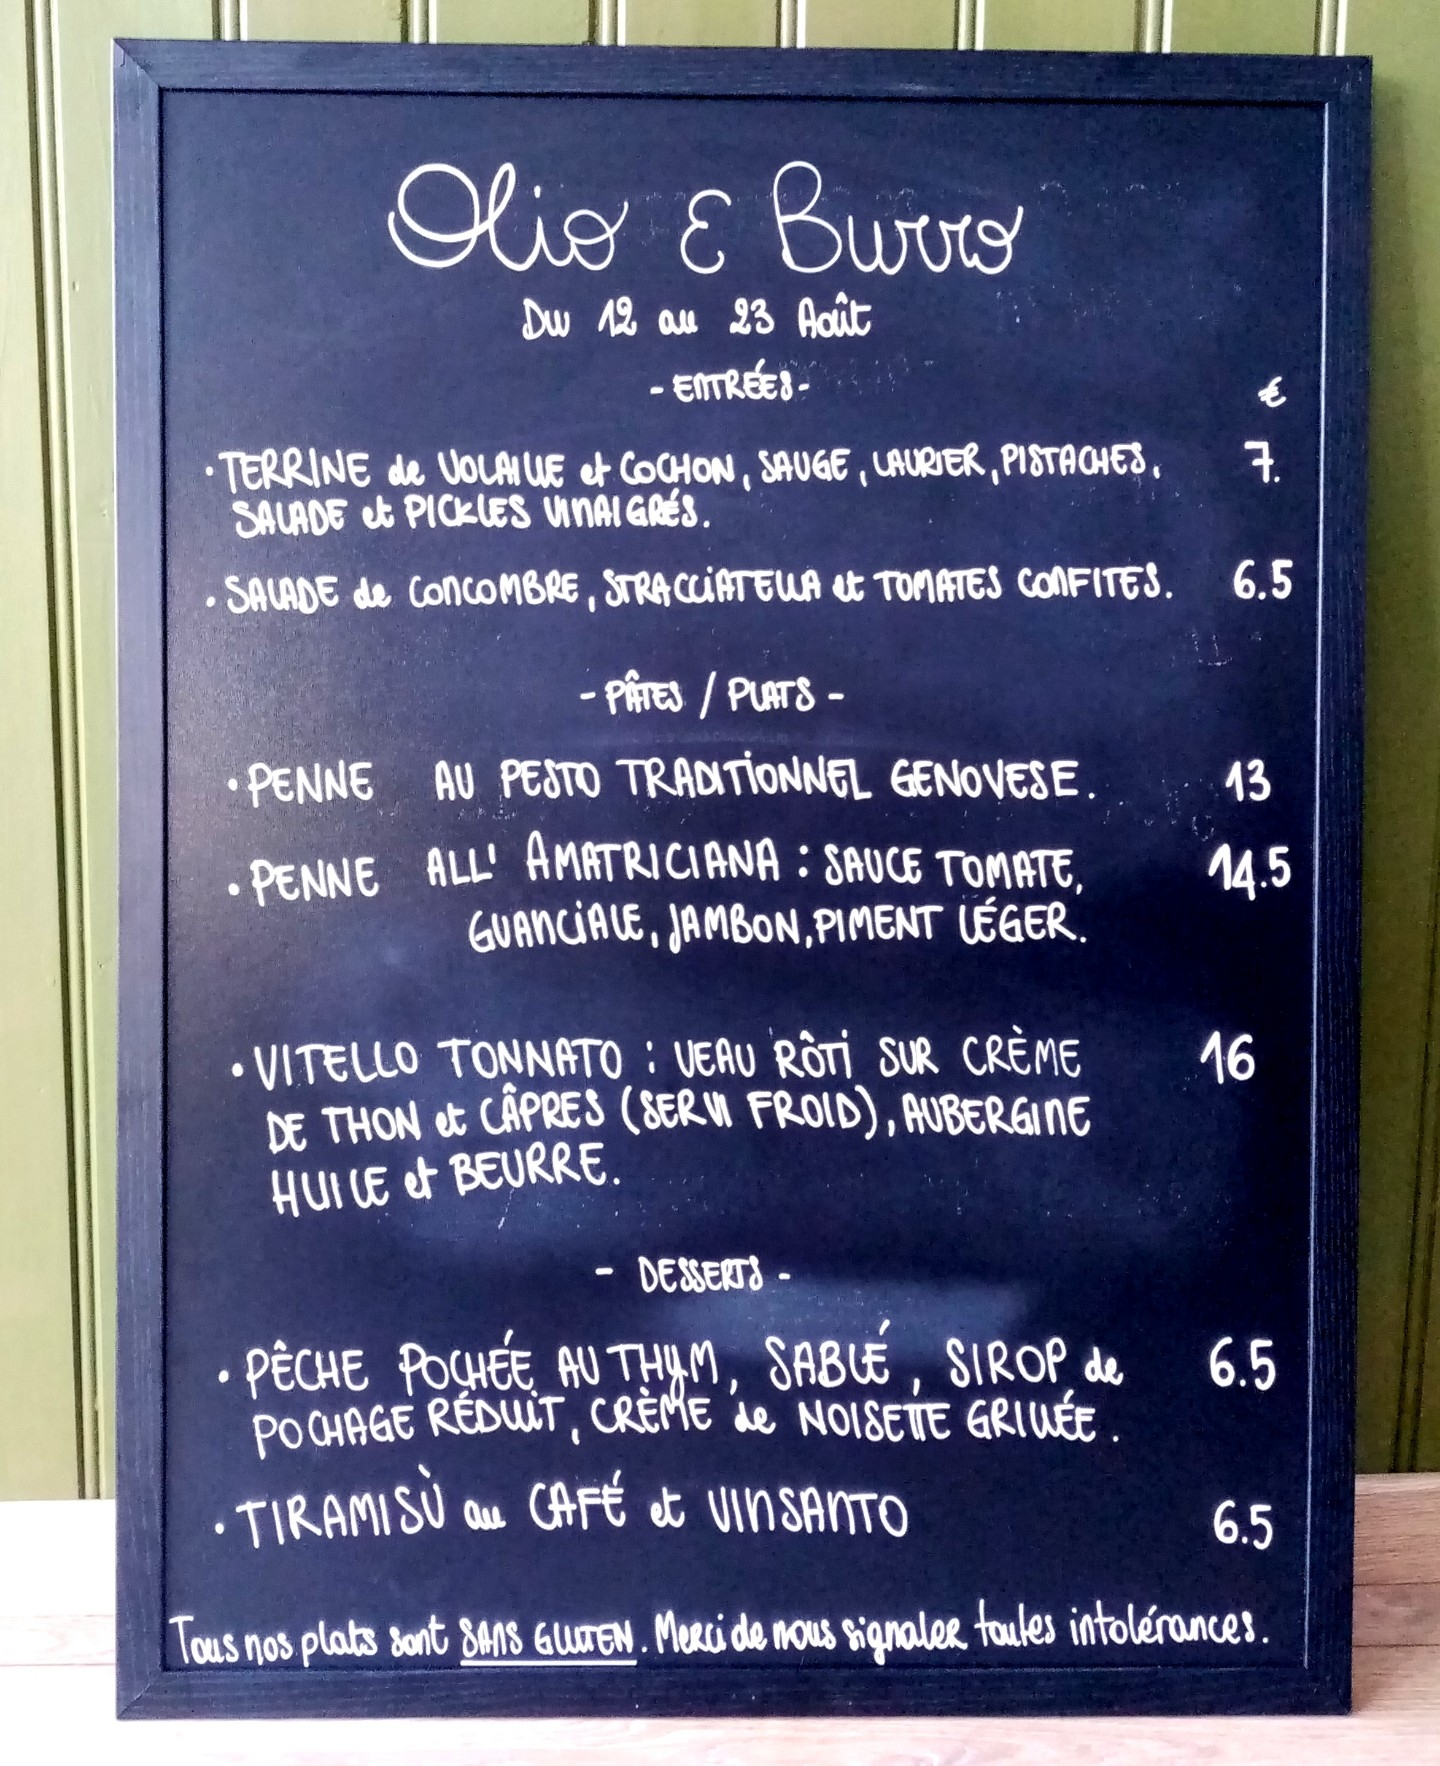 Olio E Burro
Du 12 au 23 Août
- ENTRÉES -
€
• TERRINE de VOLAILLE et COCHON, SAUGE, LAURIER, PISTACHES, 7.
SALADE et PICKLES VINAIGRÉS.
• SALADE de CONCOMBRE, STRACCIATELLA et TOMATES CONFITES. 6.5
- PÂTES / PLATS -
• PENNE AU PESTO TRADITIONNEL GENOVESE. 13
• PENNE ALL' AMATRICIANA : SAUCE TOMATE, 14.5
GUANCIALE, JAMBON, PIMENT LÉGER.
• VITELLO TONNATO : VEAU RÔTI SUR CRÈME 16
DE THON et CÂPRES (SERVI FROID), AUBERGINE
HUILE et BEURRE.
- DESSERTS -
• PÊCHE POCHÉE AU THYM, SABLÉ, SIROP de 6.5
POCHAGE RÉDUIT, CRÈME de NOISETTE GRILLÉE.
• TIRAMISÙ au CAFÉ et VINSANTO 6.5
Tous nos plats sont SANS GLUTEN. Merci de nous signaler toutes intolérances.